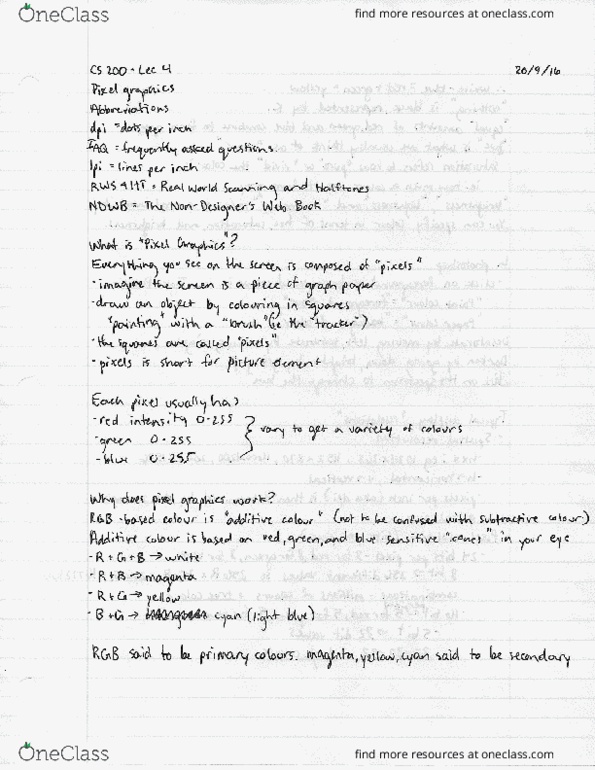 OneClass
find more resources at oneclass.com
CS 200 - Lec 4
20/9/16
Pixel graphics
Abbreviations
dpi = dots per inch
FAQ = frequently asked questions
lpi = lines per inch
RWS4HT = Real World Scanning and Halftones
NDWB = The Non-Designer's Web Book
What is "Pixel Graphics"?
Everything you see on the screen is composed of "pixels"
- imagine the screen is a piece of graph paper
- draw an object by colouring in squares
"painting" with a "brush" (ie the "tracker")
- the squares are called "pixels"
- pixels is short for picture element
Each pixel usually has
- red intensity 0-255
- green 0-255
- blue 0-255
vary to get a variety of colours
Why does pixel graphics work?
RGB-based colour is "additive colour" (not to be confused with subtractive colour)
Additive colour is based on red, green, and blue sensitive "cones" in your eye
- R + G + B → white
- R + B → magenta
- R + G → yellow
- B + G → cyan (light blue)
RGB said to be primary colours. magenta, yellow, cyan said to be secondary
OneClass
find more resources at oneclass.com